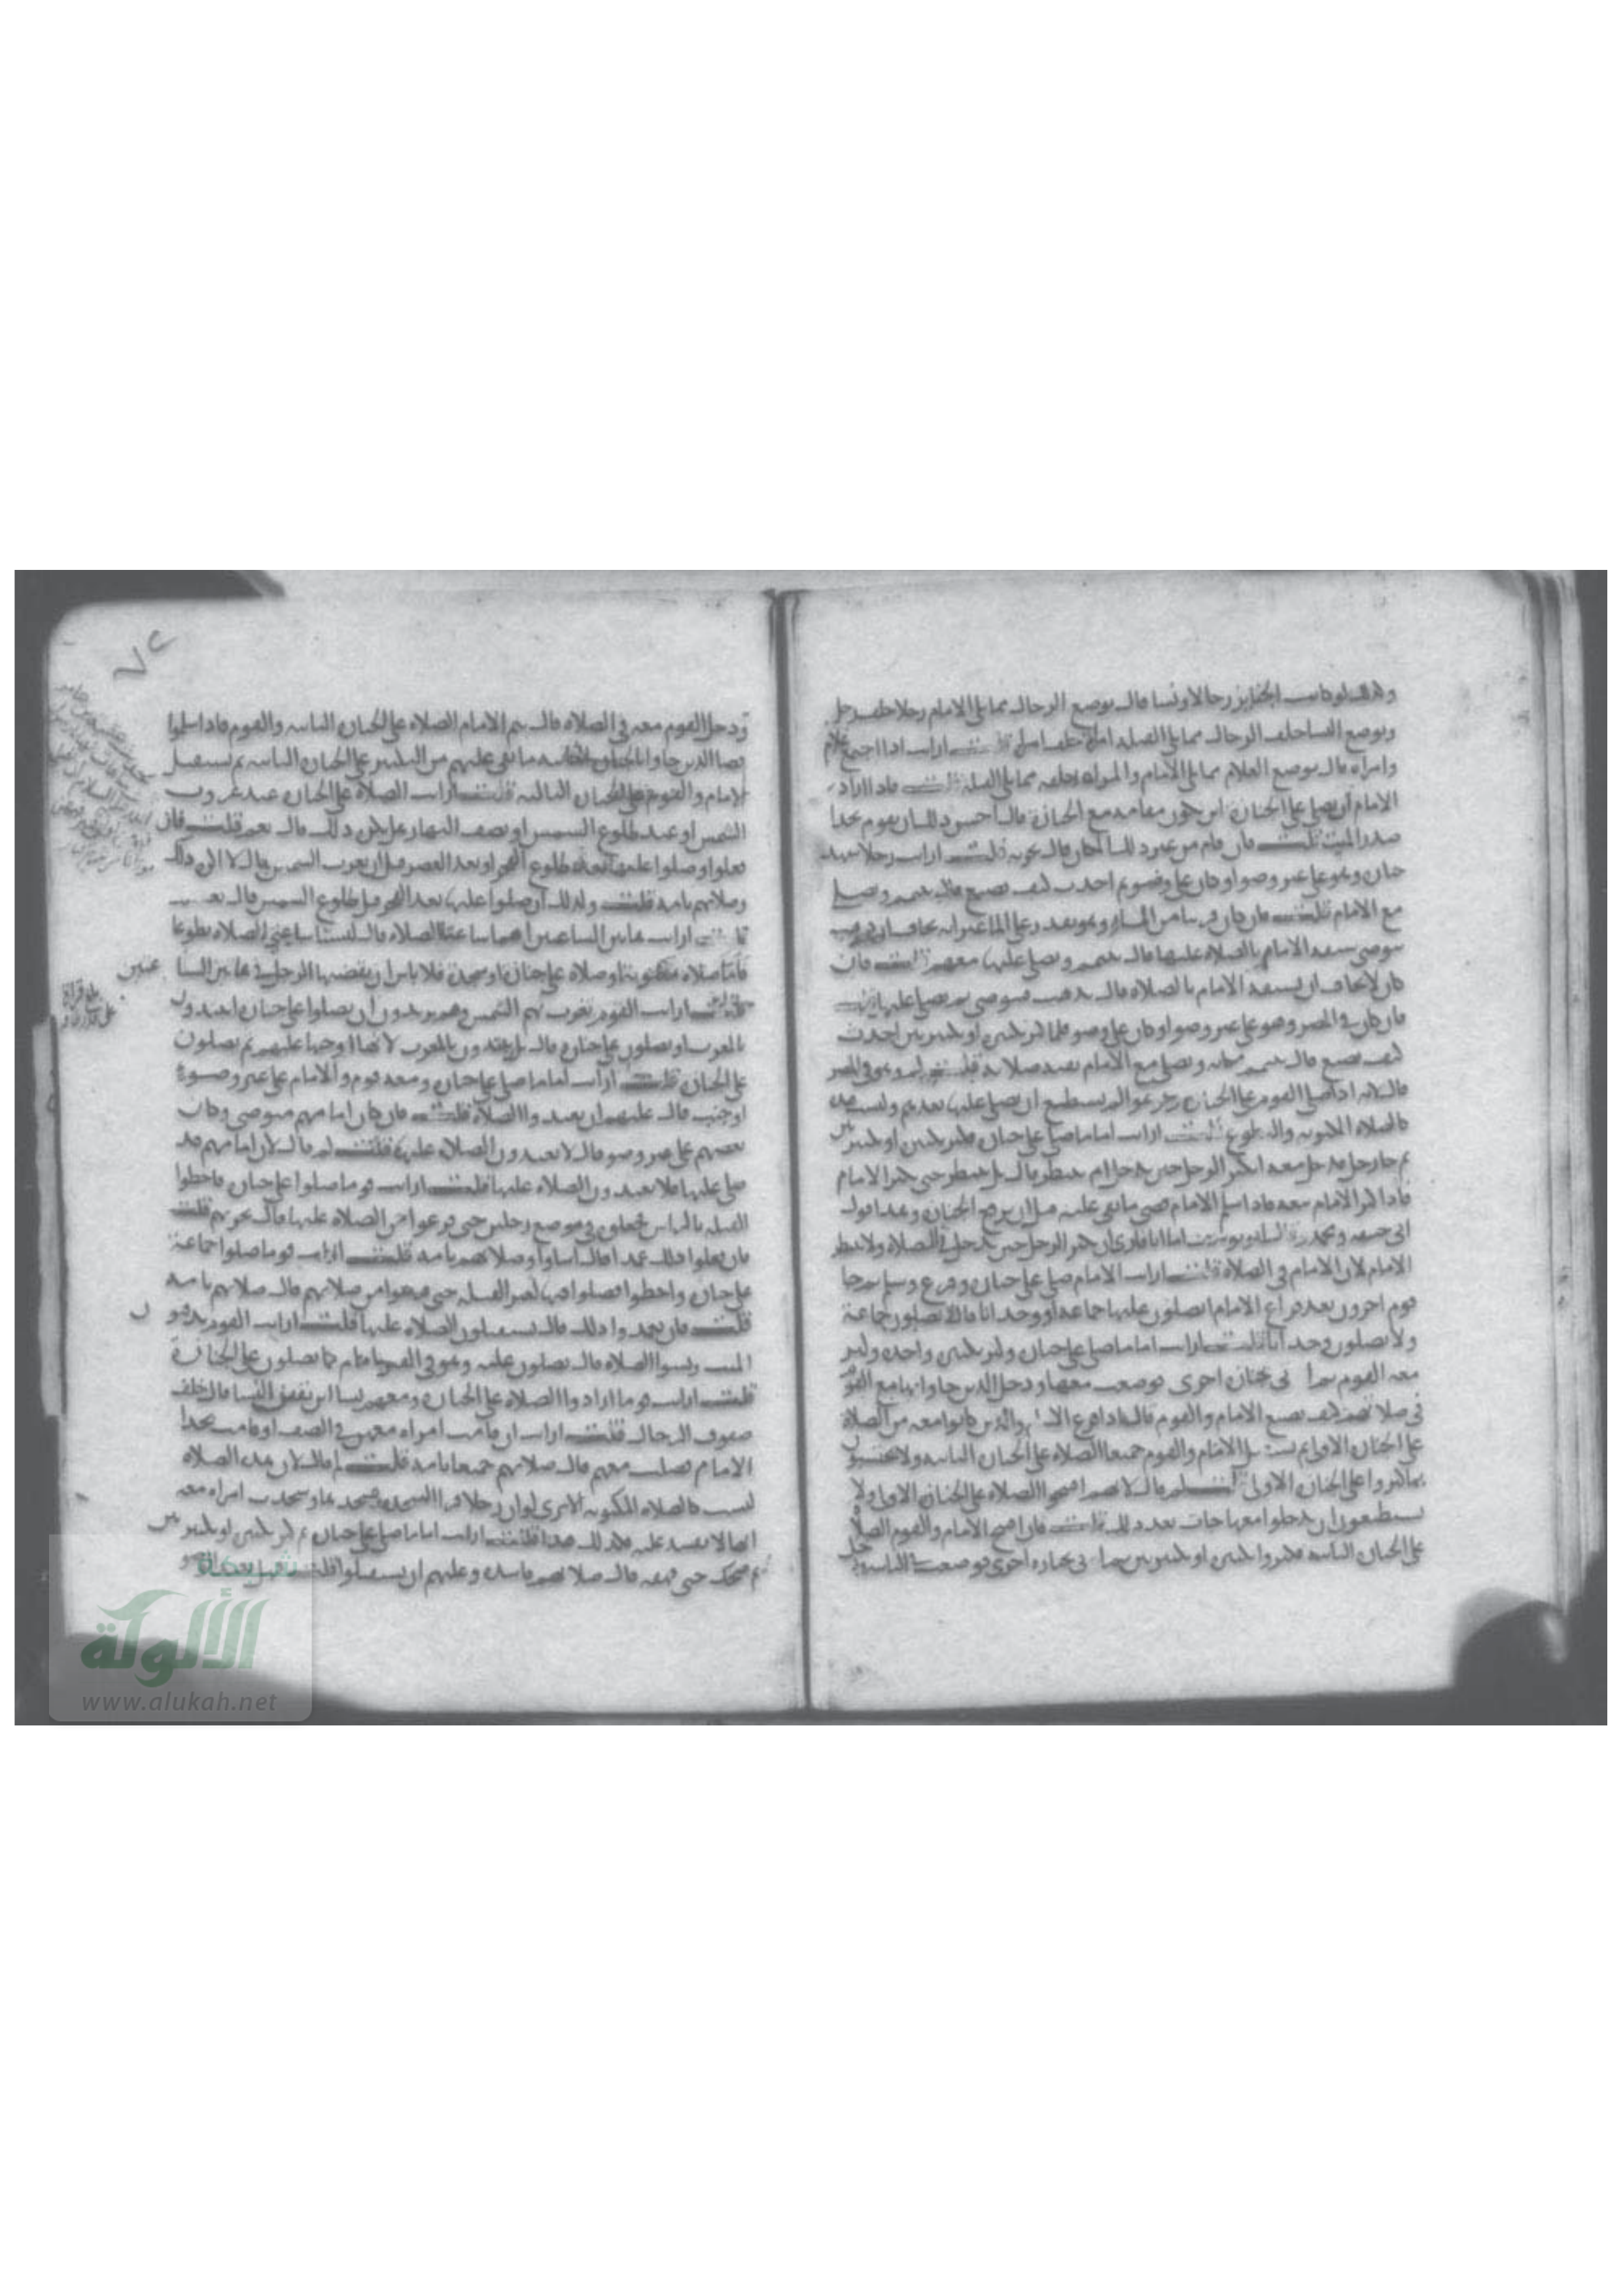 وكذلك لو كانت الجنايز رجالا ونسا قال يوضع الرجال مما يلي الامام رجلا خلف رجل
ويوضع النسا خلف الرجال مما يلي القبلة امراة خلف امراة قلت ارايت اذا اجتمع غلام
وامراة قال يوضع الغلام مما يلي الامام والمراة خلفه مما يلي القبلة قلت فاذا اراد
الامام ان يصلي على الجنازة اين يكون مقامه مع الجنازة قال احسن ذلك ان يقوم بحذا
صدر الميت قلت فان قام من غير ذلك المكان قال يجزيه قلت ارايت رجلا شهد
جنازة وهو على غير وضو او كان على وضو ثم احدث كيف يصنع قال يتيمم ويصلي
مع الامام قلت فان كان قريبا من الماء وهو يقدر على الماء غير انه يخاف ان ذهب
يتوضى سبقه الامام بالصلاة عليها قال يتيمم ويصلي عليها معهم قلت فان
كان لا يخاف ان يسبقه الامام بالصلاة قال يذهب فيتوضى ثم يصلي عليها قلت
فان كان في المصر وهو على غير وضو او كان على وضو فلما كبر تكبيرة او تكبيرتين احدث
كيف يصنع قال يتيمم مكانه ويصلي مع الامام بقية صلاته قلت لم وهو في المصر
قال لانه اذا صلى القوم على الجنازة وفرغوا لم يستطع ان يصلي عليها بعدهم وليست هذه
كالصلاة المكتوبة والتطوع قلت ارايت اماما صلى على جنازة فكبر تكبيرة او تكبيرتين
ثم جا رجل فدخل معه ايكبر الرجل حين يدخل ام ينتظر قال بل ينتظر حتى يكبر الامام
فاذا كبر الامام معه فاذا سلم الامام قضى ما بقي عليه قبل ان ترفع الجنازة وهذا قول
ابي حنيفة ومحمد وقال ابو يوسف اما انا فارى ان يكبر الرجل حين يدخل في الصلاة ولا ينتظر
الامام لان الامام في الصلاة قلت ارايت الامام صلى على جنازة وفرغ وسلم ثم جا
قوم اخرون بعد فراغ الامام ايصلون عليها جماعة او وحدانا قال لا يصلون جماعة
ولا يصلون وحدانا قلت ارايت اماما صلى على جنازة وكبر تكبيرة واحدة وكبر
معه القوم ثم اتي بجنازة اخرى فوضعت معها ودخل الذين جاوا بها مع القوم
في صلاتهم كيف يصنع الامام والقوم قال اذا فرغ الامام والذين كانوا معه من الصلاة
على الجنازة الاولى ثم يستقبل الامام والقوم جميعا الصلاة على الجنازة الثانية ولا يحتسبون
بما كبروا على الجنازة الاولى قلت لم قال لانهم افتتحوا الصلاة على الجنازة الاولى ولا
يستطيعون ان يدخلوا معها جات بعد ذلك قلت فان افتتح الامام والقوم الصلاة
على الجنازة الثانية فكبروا تكبيرة او تكبيرتين ثم اتي بجنازة اخرى فوضعت الثانية
ودخل القوم معه في الصلاة قال يتم الامام الصلاة على الجنازة الثانية والقوم فاذا سلموا
قضا الذين جاوا بالجنازة الثانية ما بقي عليهم من التكبير على الجنازة الثانية ثم يستقبل
الامام والقوم على الجنازة الثالثة قلت ارايت الصلاة على الجنازة عند غروب
الشمس او عند طلوع الشمس او نصف النهار هل يكره ذلك قال نعم قلت فان
فعلوا وصلوا عليها بعد طلوع الفجر او بعد العصر قبل ان تغرب الشمس قال لا اكره ذلك
وصلاتهم تامة قلت وكذلك ان صلوا عليها بعد الفجر قبل طلوع الشمس قال نعم
قلت ارايت هاتين الساعتين اهما ساعتا الصلاة قال ليستا ساعتي الصلاة تطوعا
فاما صلاة مكتوبة او صلاة على جنازة او سجدة فلا باس ان يقضيها الرجل في هاتين السا
عتين
قلت ارايت القوم تغرب لهم الشمس وهم يريدون ان يصلوا على جنازة ايبدون
بالمغرب او يصلون على جنازة قال بل يبتدون بالمغرب لانها اوجبها عليهم ثم يصلون
على الجنازة قلت ارايت اماما صلى على جنازة ومعه قوم والامام على غير وضوء
او جنب قال عليهم ان يعيدوا الصلاة قلت فان كان امامهم متوضى وكان
بعضهم على غير وضو قال لا يعيدون الصلاة عليها قلت لم قال لان امامهم قد
صلى عليها فلا يعيدون الصلاة عليها قلت ارايت قوما صلوا على جنازة فاخطوا
القبلة بالراس فجعلوه في موضع رجليه حتى فرغوا من الصلاة عليها قال يجزيهم قلت
فان فعلوا ذلك عمدا قال اساوا وصلاتهم تامة قلت ارايت قوما صلوا جماعة
على جنازة واخطوا فصلوا فيها لغير القبلة حتى فرغوا من صلاتهم قال صلاتهم تامة
قلت فان تعمدوا ذلك قال يستقبلون الصلاة عليها قلت ارايت القوم يدفنو ن
الميت ونسوا الصلاة قال يصلون عليه وهو في القبر كما يصلون على الجنازة
قلت ارايت قوما ارادوا الصلاة على الجنازة ومعهم نسا اين يقفن النسا قال خلف
صفوف الرجال قلت ارايت ان قامت امراة معهم في الصف او قامت بحذا
الامام فصلت معهم قال صلاتهم جميعا تامة قلت لم قال لان هذه الصلاة
ليست كالصلاة المكتوبة الا ترى لو ان رجلا قرا السجدة فسجدها وسجدت امراة معه
انها لا تفسد عليه فكذلك هذا قلت ارايت اماما صلى على جنازة ثم كبر تكبيرة او تكبيرتين
ثم ضحك حتى قهقه قال صلاتهم فاسدة وعليهم ان يستقبلوا قلت
شبكة
الألوكة
www.alukah.net